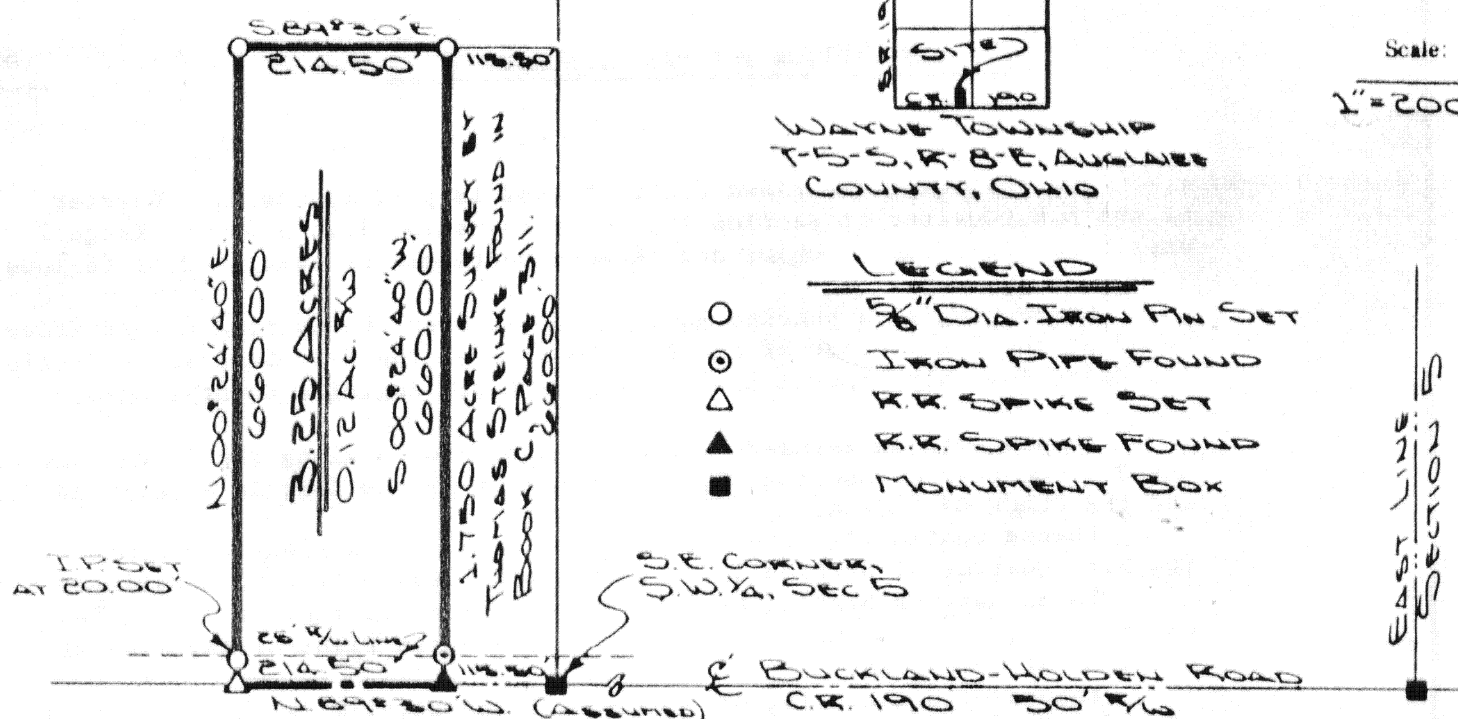 S.89°30'E
214.50'
118.80'
N 00°24'40"E
660.00'
3.25 ACRES
0.12 AC. R/W
S 00°24'40"W
660.00'
1.750 ACRE SURVEY BY
THOMAS STEINKE FOUND IN
BOOK C, PAGE 311.
660.00'
I.P. SET
AT 20.00'
25' R/W LINE
214.50'
118.80'
N.89°30'W. (ASSUMED)
S.E. CORNER,
S.W. 1/4, SEC 5
SITE
C.R. 190
Scale:
1"=200
WAYNE TOWNSHIP
T-5-S, R-8-E, AUGLAIZE
COUNTY, OHIO
LEGEND
5/8" DIA. IRON PIN SET
IRON PIPE FOUND
R.R. SPIKE SET
R.R. SPIKE FOUND
MONUMENT BOX
℄ BUCKLAND-HOLDEN ROAD
C.R. 190 50' R/W
EAST LINE
SECTION 5